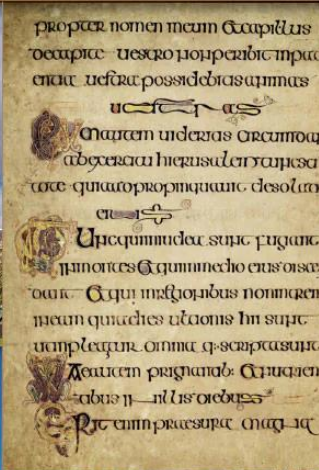 propter nomen meum Et capillus
decapite uestro non peribit inpati
entia uestra possidebitas animas
uestras
Cum autem uideritis circumdari
ab exercitu hierusalem tunc sci
tote quia adpropinquauit desolati
Tunc qui in iudea sunt fugiant
in montes Et qui in medio eius disce
dant Et qui in regionibus non intrent
in eam quia dies ultionis hii sunt
ut impleatur omnia q: scripta sunt
Vae autem prignatib: Et nutrien
tibus in illis diebus
Erit enim praesura magna